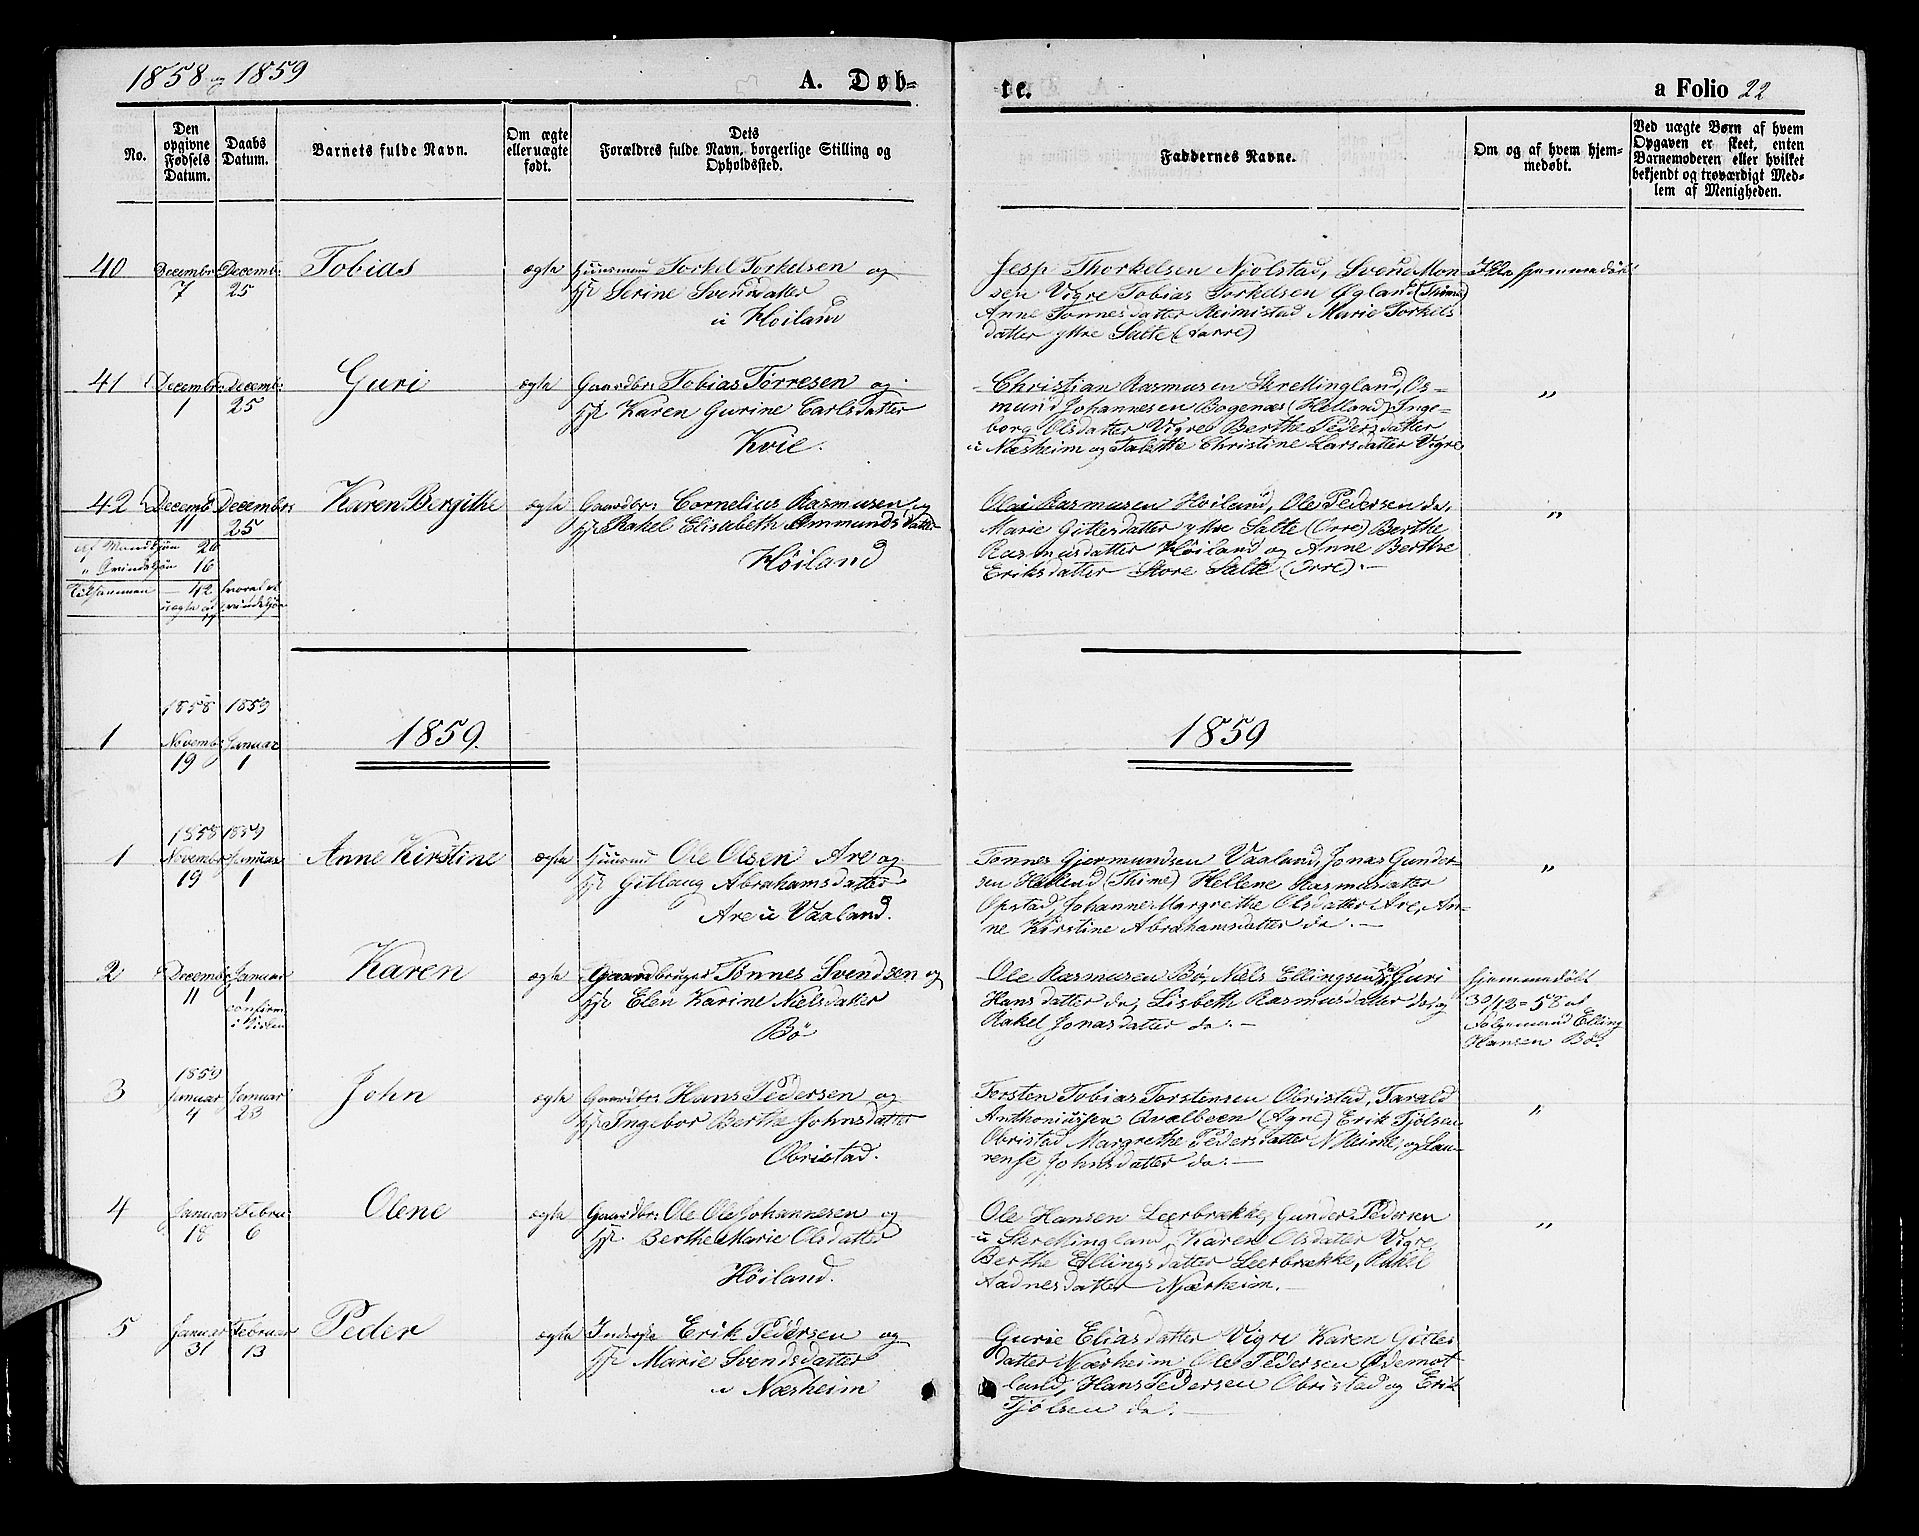 1858 og 1859
A. Døb-
te.
a Folio 22
No.
Den opgivne Fødsels Datum.
Daabs Datum.
Barnets fulde Navn.
Om ægte eller uægte født.
Dets Forældres fulde Navn, borgerlige Stilling og Opholdssted.
Faddernes Navne.
Om og af hvem hjemmedøbt.
Ved uægte Børn af hvem Opgaven er skeet, enten Barnemoderen eller hvilket bekjendt og troværdigt Medlem af Menigheden.
40
Decembr 7
Decemb: 25
Tobias
ægte
Huusmand Torkel Torkelsen og
Serine Svendsdatter
u Høiland
Jesp Thorkelsen Njolstad, Svend Mon-
sen Vigre Tobias Torkelsen Øgland (Thime)
Anne Tønnesdatter Reimistad Marie Torkels
datter yttre Salte
Ikke hjemmedøbt
41
Decembr: 1
Decemb: 25
Guri
ægte
Gaardbr: Tobias Tørresen og
Karen Gurine Carlsdatter
Kvie.
Christian Rasmusen Skrettingland, Os-
mund Johannesen Bogenæs (Helland) Inge-
borg Olsdatter Vigre Berthe Pedersdatter
u Nærheim og Tabitthe Christine Larsdatter Vigre
"
42
Decemb 11
Decembr: 25
Karen Bergithe
ægte
Gaardbr: Cornelius Rasmusen og
Rakel Elisabeth Ommundsdatter
Høiland
Olai Rasmusen Høiland, Ole Pedersen do,
Marie Gitlesdatter yttre Salte (Orre) Berthe
Rasmusdatter Høiland og Anne Berthe
Eriksdatter Store Salte (Orre).-
"
af Mandkjøn 26
" Qvindekjøn 16
Tilsammen 42
1858 1859
1
Novembr: 19
Januar 1
1859.
1859
1858 1859
1
Novembr 19
Januar 1
Anne Kirstine
ægte
Huusmd Ole Olsen Are og
Gitlaug Abrahamsdatter
Are u Vaaland.
Tønnes Gjermundsen Vaaland, Jonas Gunder-
sen Haaland (Thime) Hellene Rasmusdatter
Opstad, Johanne Margrethe Olsdatter Are, An-
ne Kirstine Abrahamsdatter do.-
"
2
Decembr 11
Januar 1
confirm: i Kirken
Karen
ægte
Gaardbruger Tønnes Svendsen og
Elen Karine Nielsdatter
Bø
Ole Rasmusen Bø, Niels Ellingsen do, Guri
Hansdatter do, Lisbeth Rasmusdatter do, og
Rakel Jonasdatter do.-
hjemmedøbt
30/12-58 af
Følgemand Elling
Hansen Bø.
1859
3
Januar 4
Januar 23
John
ægte
Gaardbr: Hans Pedersen og
Ingebor Berthe Johnsdatter
Obristad.
Torsten Tobias Torstensen Obristad, Tarald
Anthoniussen Qvalbeen (Agne) Erik Tjølsen
Obristad Margrethe Pedersdatter N Reime, og Lau-
rense Johnsdatter do.-
"
4
Januar 18
Febru: 6
Olene
ægte
Gaardbr: Ole Ole Johannesen og
Berthe Marie Olsdatter
Høiland.
Ole Hansen Leerbrække, Gunder Pedersen
u Skrettingland, Karen Olsdatter Vigre,
Berthe Ellingsdatter Leerbrække, Rakel
Aadnesdatter Nærheim.-
"
5
Januar 31
Februar 13
Peder
ægte
Inderste Erik Pedersen og
Marie Svendsdatter
u Nærheim
Gurie Eliasdatter Vigre Karen Gitles
datter Nærheim, Ole Pedersen Ødemot-
land, Hans Pedersen Obristad og Erik
Tjølsen do.-